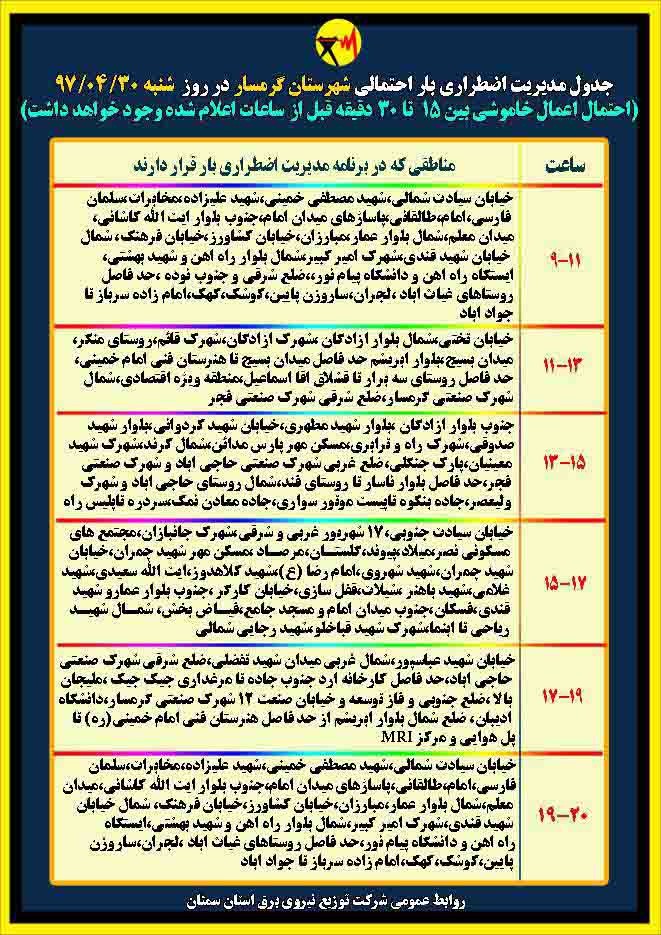 جدول مدیریت اضطراری بار احتمالی شهرستان گرمسار در روز شنبه ۹۷/۰۴/۳۰
(احتمال اعمال خاموشی بین ۱۵ تا ۳۰ دقیقه قبل از ساعات اعلام شده وجود خواهد داشت)
ساعت
مناطقی که در برنامه مدیریت اضطراری بار قرار دارند
۹-۱۱
خیابان سیادت شمالی،شهید مصطفی خمینی،شهید علیزاده،مخابرات،سلمان
فارسی،امام،طالقانی،پاساژهای میدان امام،جنوب بلوار ایت الله کاشانی،
میدان معلم،شمال بلوار عمار،مبارزان،خیابان کشاورز،خیابان فرهنگ، شمال
خیابان شهید قندی،شهرک امیر کبیر،شمال بلوار راه اهن و شهید بهشتی،
ایستگاه راه اهن و دانشگاه پیام نور،،ضلع شرقی و جنوب نوده ،حد فاصل
روستاهای غیاث اباد ،لجران،ساروزن پایین،کوشک،کهک،امام زاده سرباز تا
جواد اباد
۱۱-۱۳
خیابان تختی،شمال بلوار ازادگان ،شهرک ازادگان،شهرک قائم،روستای منگر،
میدان بسیج،بلوار ابریشم حد فاصل میدان بسیج تا هنرستان فنی امام خمینی،
حد فاصل روستای سه برار تا قشلاق اقا اسماعیل،منطقه ویژه اقتصادی،شمال
شهرک صنعتی گرمسار،ضلع شرقی شهرک صنعتی فجر
۱۳-۱۵
جنوب بلوار ازادگان ،بلوار شهید مطهری،خیابان شهید کردوانی،بلوار شهید
صدوقی،شهرک راه و ترابری،مسکن مهر پارس مدائن،شمال کرند،شهرک شهید
معینیان،پارک جنگلی،ضلع غربی شهرک صنعتی حاجی اباد و شهرک صنعتی
فجر،حد فاصل بلوار ناسار تا روستای فند،شمال روستای حاجی اباد و شهرک
ولیعصر،جاده بنکوه تاپیست موتور سواری،جاده معادن نمک،سردره تاپلیس راه
۱۵-۱۷
خیابان سیادت جنوبی،۱۷ شهریور غربی و شرقی،شهرک جانبازان،مجتمع های
مسکونی نصر،میلاد،پیوند،گلستان،مرصاد ،مسکن مهر شهید چمران،خیابان
شهید چمران،شهید شهروی،امام رضا (ع)،شهید کلاهدوز،ایت الله سعیدی،شهید
غلامی،شهید باهنر ،شیلات،قفل سازی،خیابان کارگر ،جنوب بلوار عمارو شهید
قندی،فسکان،جنوب میدان امام و مسجد جامع،فیاض بخش، شمال شهید
ریاحی تا ابنما،شهرک شهید قباخلو،شهید رجایی شمالی
۱۷-۱۹
خیابان شهید عباسپور،شمال غربی میدان شهید تفضلی،ضلع شرقی شهرک صنعتی
حاجی اباد،حد فاصل کارخانه ارد جنوب جاده تا مرغداری جیک جیک ،ملیجان
بالا،ضلع جنوبی و فاز توسعه و خیابان صنعت ۱۲ شهرک صنعتی گرمسار،دانشگاه
ادیبان، ضلع شمال بلوار ابریشم از حد فاصل هنرستان فنی امام خمینی(ره) تا
پل هوایی و مرکز MRI
۱۹-۲۰
خیابان سیادت شمالی،شهید مصطفی خمینی،شهید علیزاده،مخابرات،سلمان
فارسی،امام،طالقانی،پاساژهای میدان امام،جنوب بلوار ایت الله کاشانی،میدان
معلم،شمال بلوار عمار،مبارزان،خیابان کشاورز،خیابان فرهنگ، شمال خیابان
شهید قندی،شهرک امیر کبیر،شمال بلوار راه اهن و شهید بهشتی،ایستگاه
راه اهن و دانشگاه پیام نور،حد فاصل روستاهای غیاث اباد ،لجران،ساروزن
پایین،کوشک،کهک،امام زاده سرباز تا جواد اباد
روابط عمومی شرکت توزیع نیروی برق استان سمنان